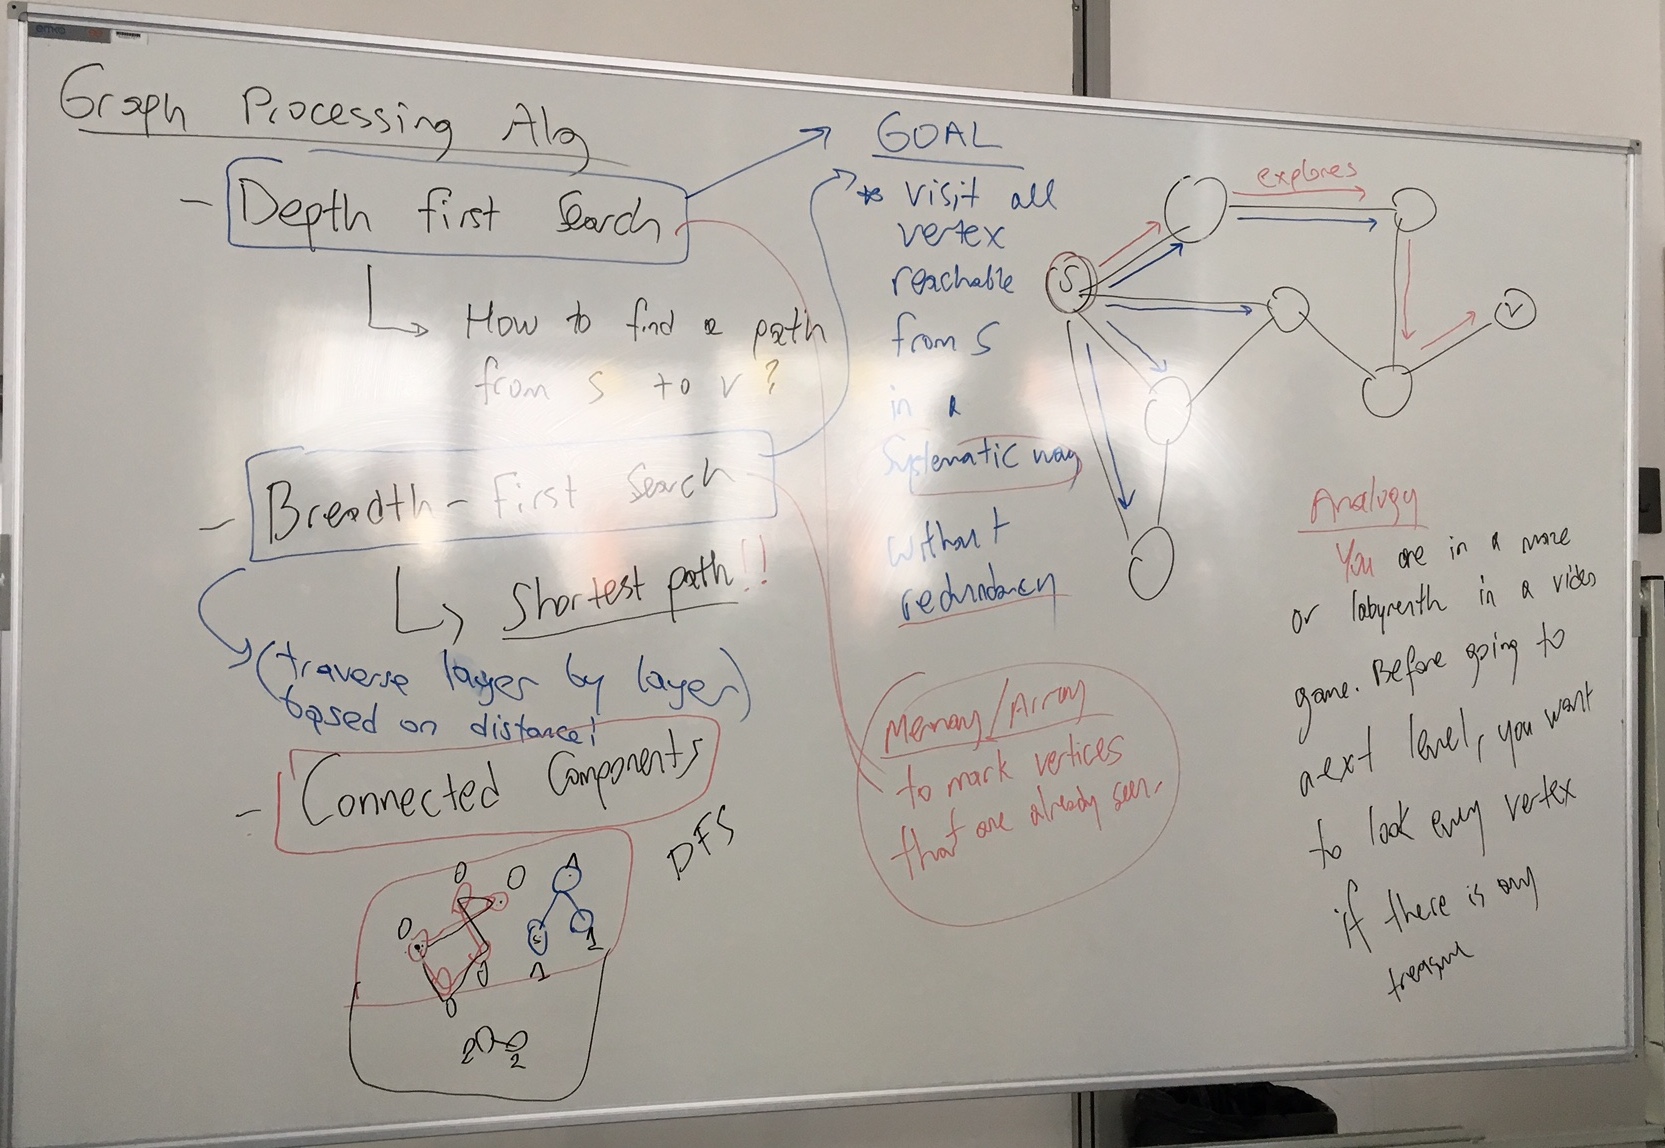 Graph Processing Alg
- Depth first Search
How to find a path
from s to v?
- Breadth-First Search
Shortest path!!
(traverse layer by layer)
based on distance!
- Connected Components
DFS
0
0
1
0
0
0
s
1
1
2
2
GOAL
* visit all
vertex
reachable
from S
in a
Systematic way
without
redundancy
Memory/Array
to mark vertices
that are already seen.
explores
S
v
Analogy
You are in a maze
or labyrenth in a video
game. Before going to
next level, you want
to look every vertex
if there is any
treasure